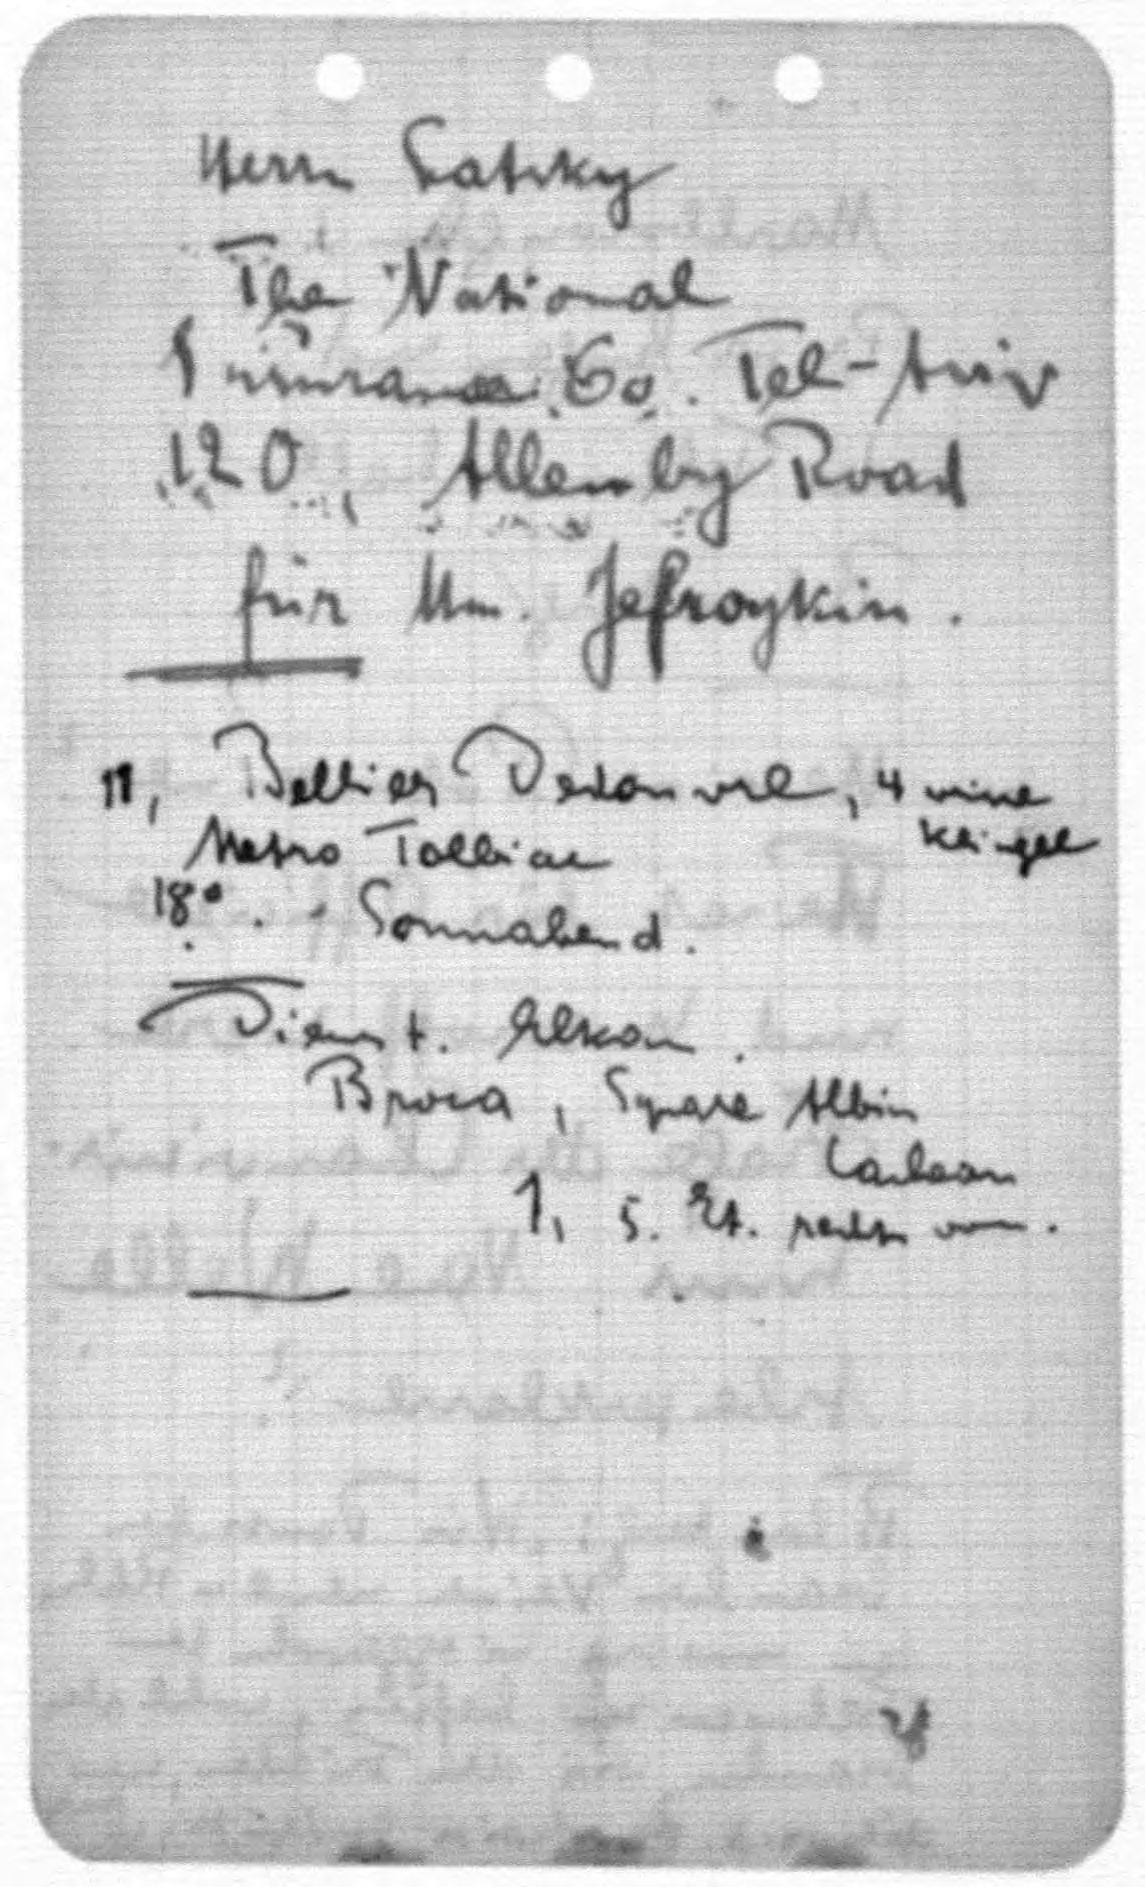 Herrn Satzky
The National
Insurance Co. Tel-Aviv
120, Allenby Road
für Mm. Jefroykin.
11, Bellier Dedouvre, 4 mine
klingel
Metro Tolbiac
18° Sonnabend.
Dienst. Elkan.
Broca, Square Albin
Cachan
1, 5. Et. rechts